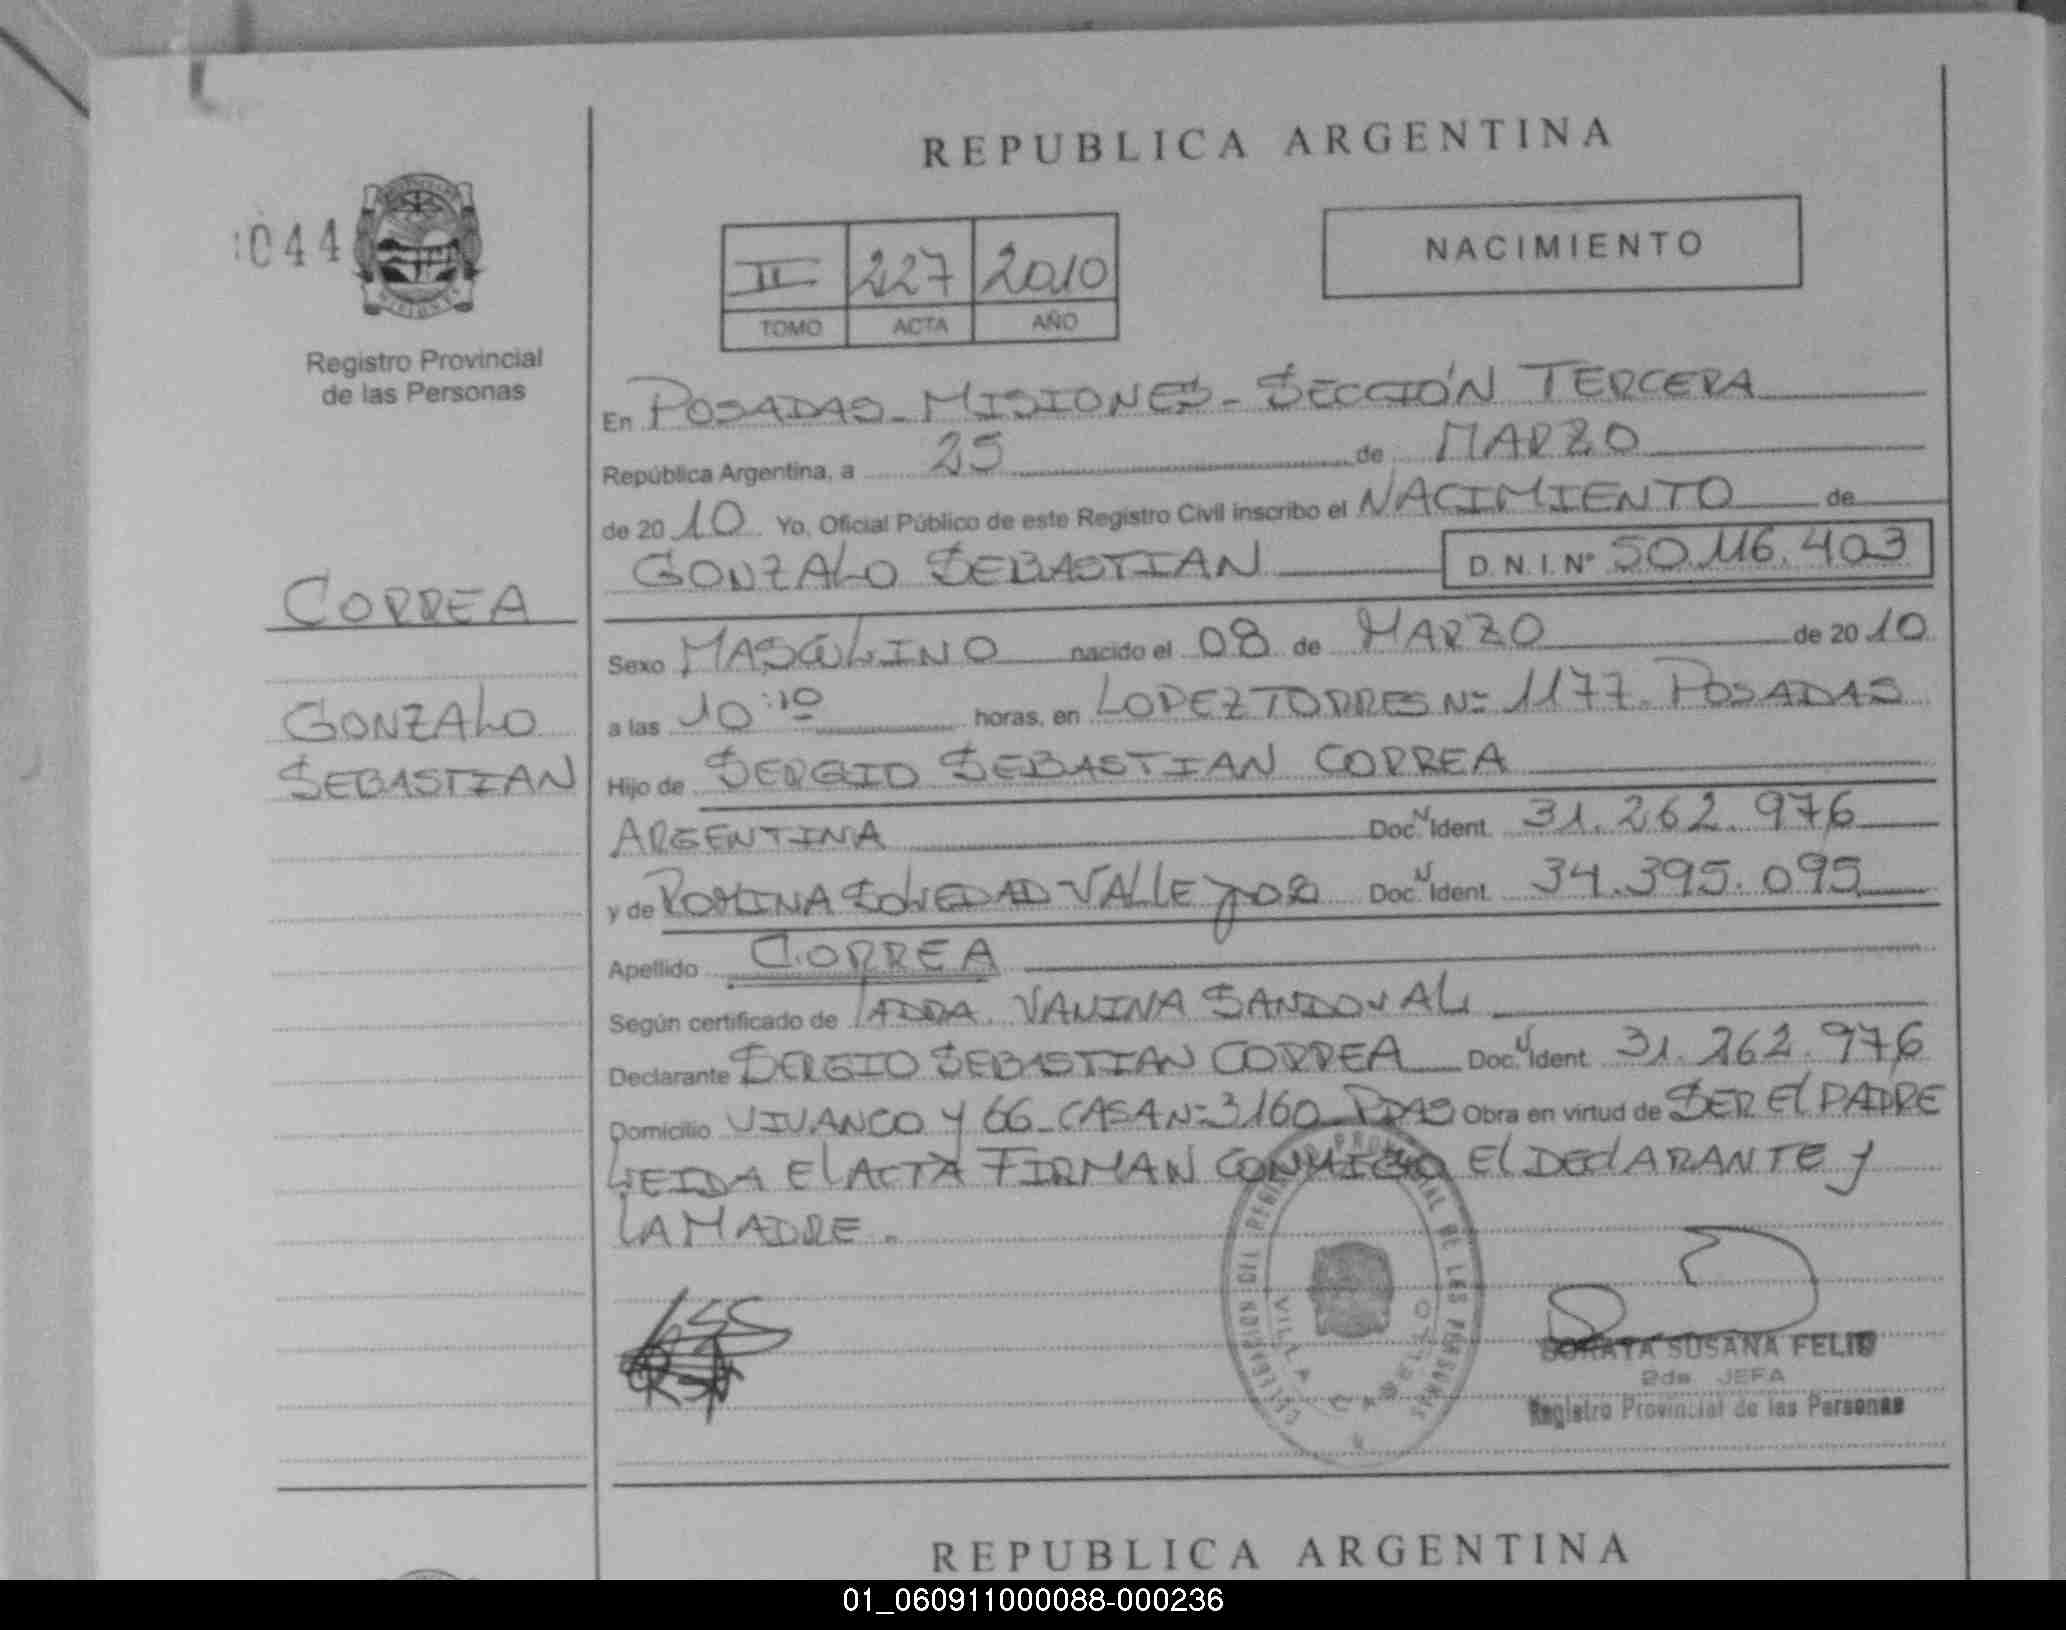 REPUBLICA ARGENTINA
044
II 227 2010
TOMO ACTA AÑO
NACIMIENTO
Registro Provincial
de las Personas
En POSADAS - MISIONES - SECCIÓN TERCERA
República Argentina, a 25 de MARZO
de 20 10 Yo, Oficial Público de este Registro Civil inscribo el NACIMIENTO de
GONZALO SEBASTIAN D.N.I. Nº 50.116.403
CORREA
GONZALO
SEBASTIAN
Sexo MASCULINO nacido el 08 de MARZO de 20 10
a las 10:10 horas, en LOPEZ TORRES Nº 1177. POSADAS
Hijo de SERGIO SEBASTIAN CORREA
ARGENTINA Doc. Ident. 31.262.976
y de ROMINA SOLEDAD VALLEJOS Doc. Ident. 34.395.095
Apellido CORREA
Según certificado de VANINA SANDOVAL
Declarante SERGIO SEBASTIAN CORREA Doc. Ident. 31.262.976
Domicilio VIVANCO Y 66 - CASA Nº 3160 PDAS Obra en virtud de SER El PADRE
LEIDA El ACTA FIRMAN CONMIGO El DEClARANTE y
LA MADRE.
DELEGACION DEL REGISTRO PROVINCIAL DE LAS PERSONAS
VILLA CABELLO
SORAYA SUSANA FELIU
2da. JEFA
Registro Provincial de las Personas
REPUBLICA ARGENTINA
01_060911000088-000236